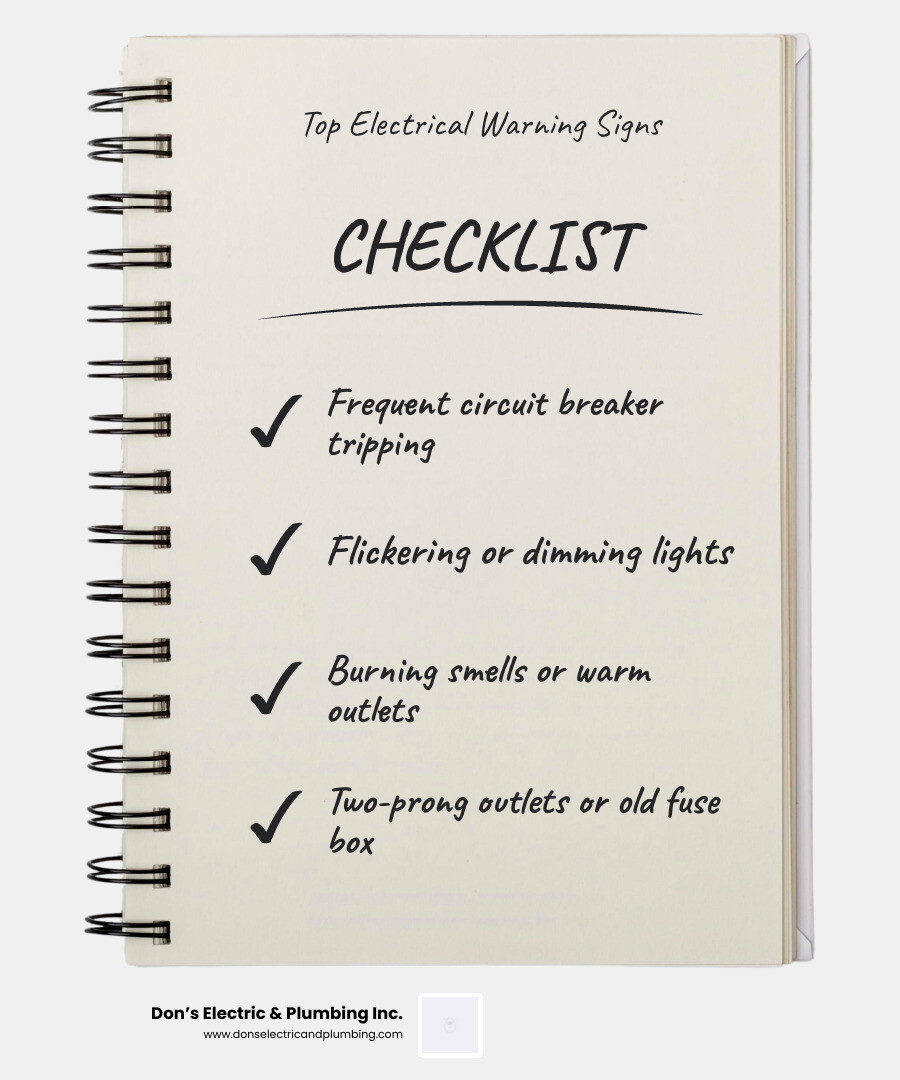 Top Electrical Warning Signs
CHECKLIST
Frequent circuit breaker
tripping
Flickering or dimming lights
Burning smells or warm
outlets
Two-prong outlets or old fuse
box
Don's Electric & Plumbing Inc.
www.donselectricandplumbing.com